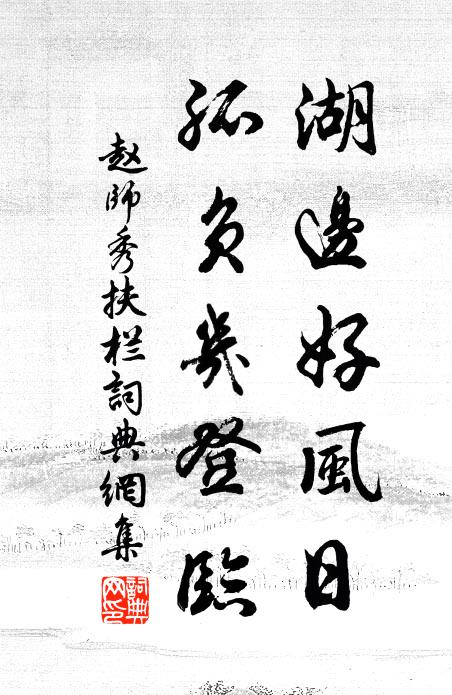 湖邊好風日
孤負幾登臨
赵師秀扶栏詞典網集
詞典网印